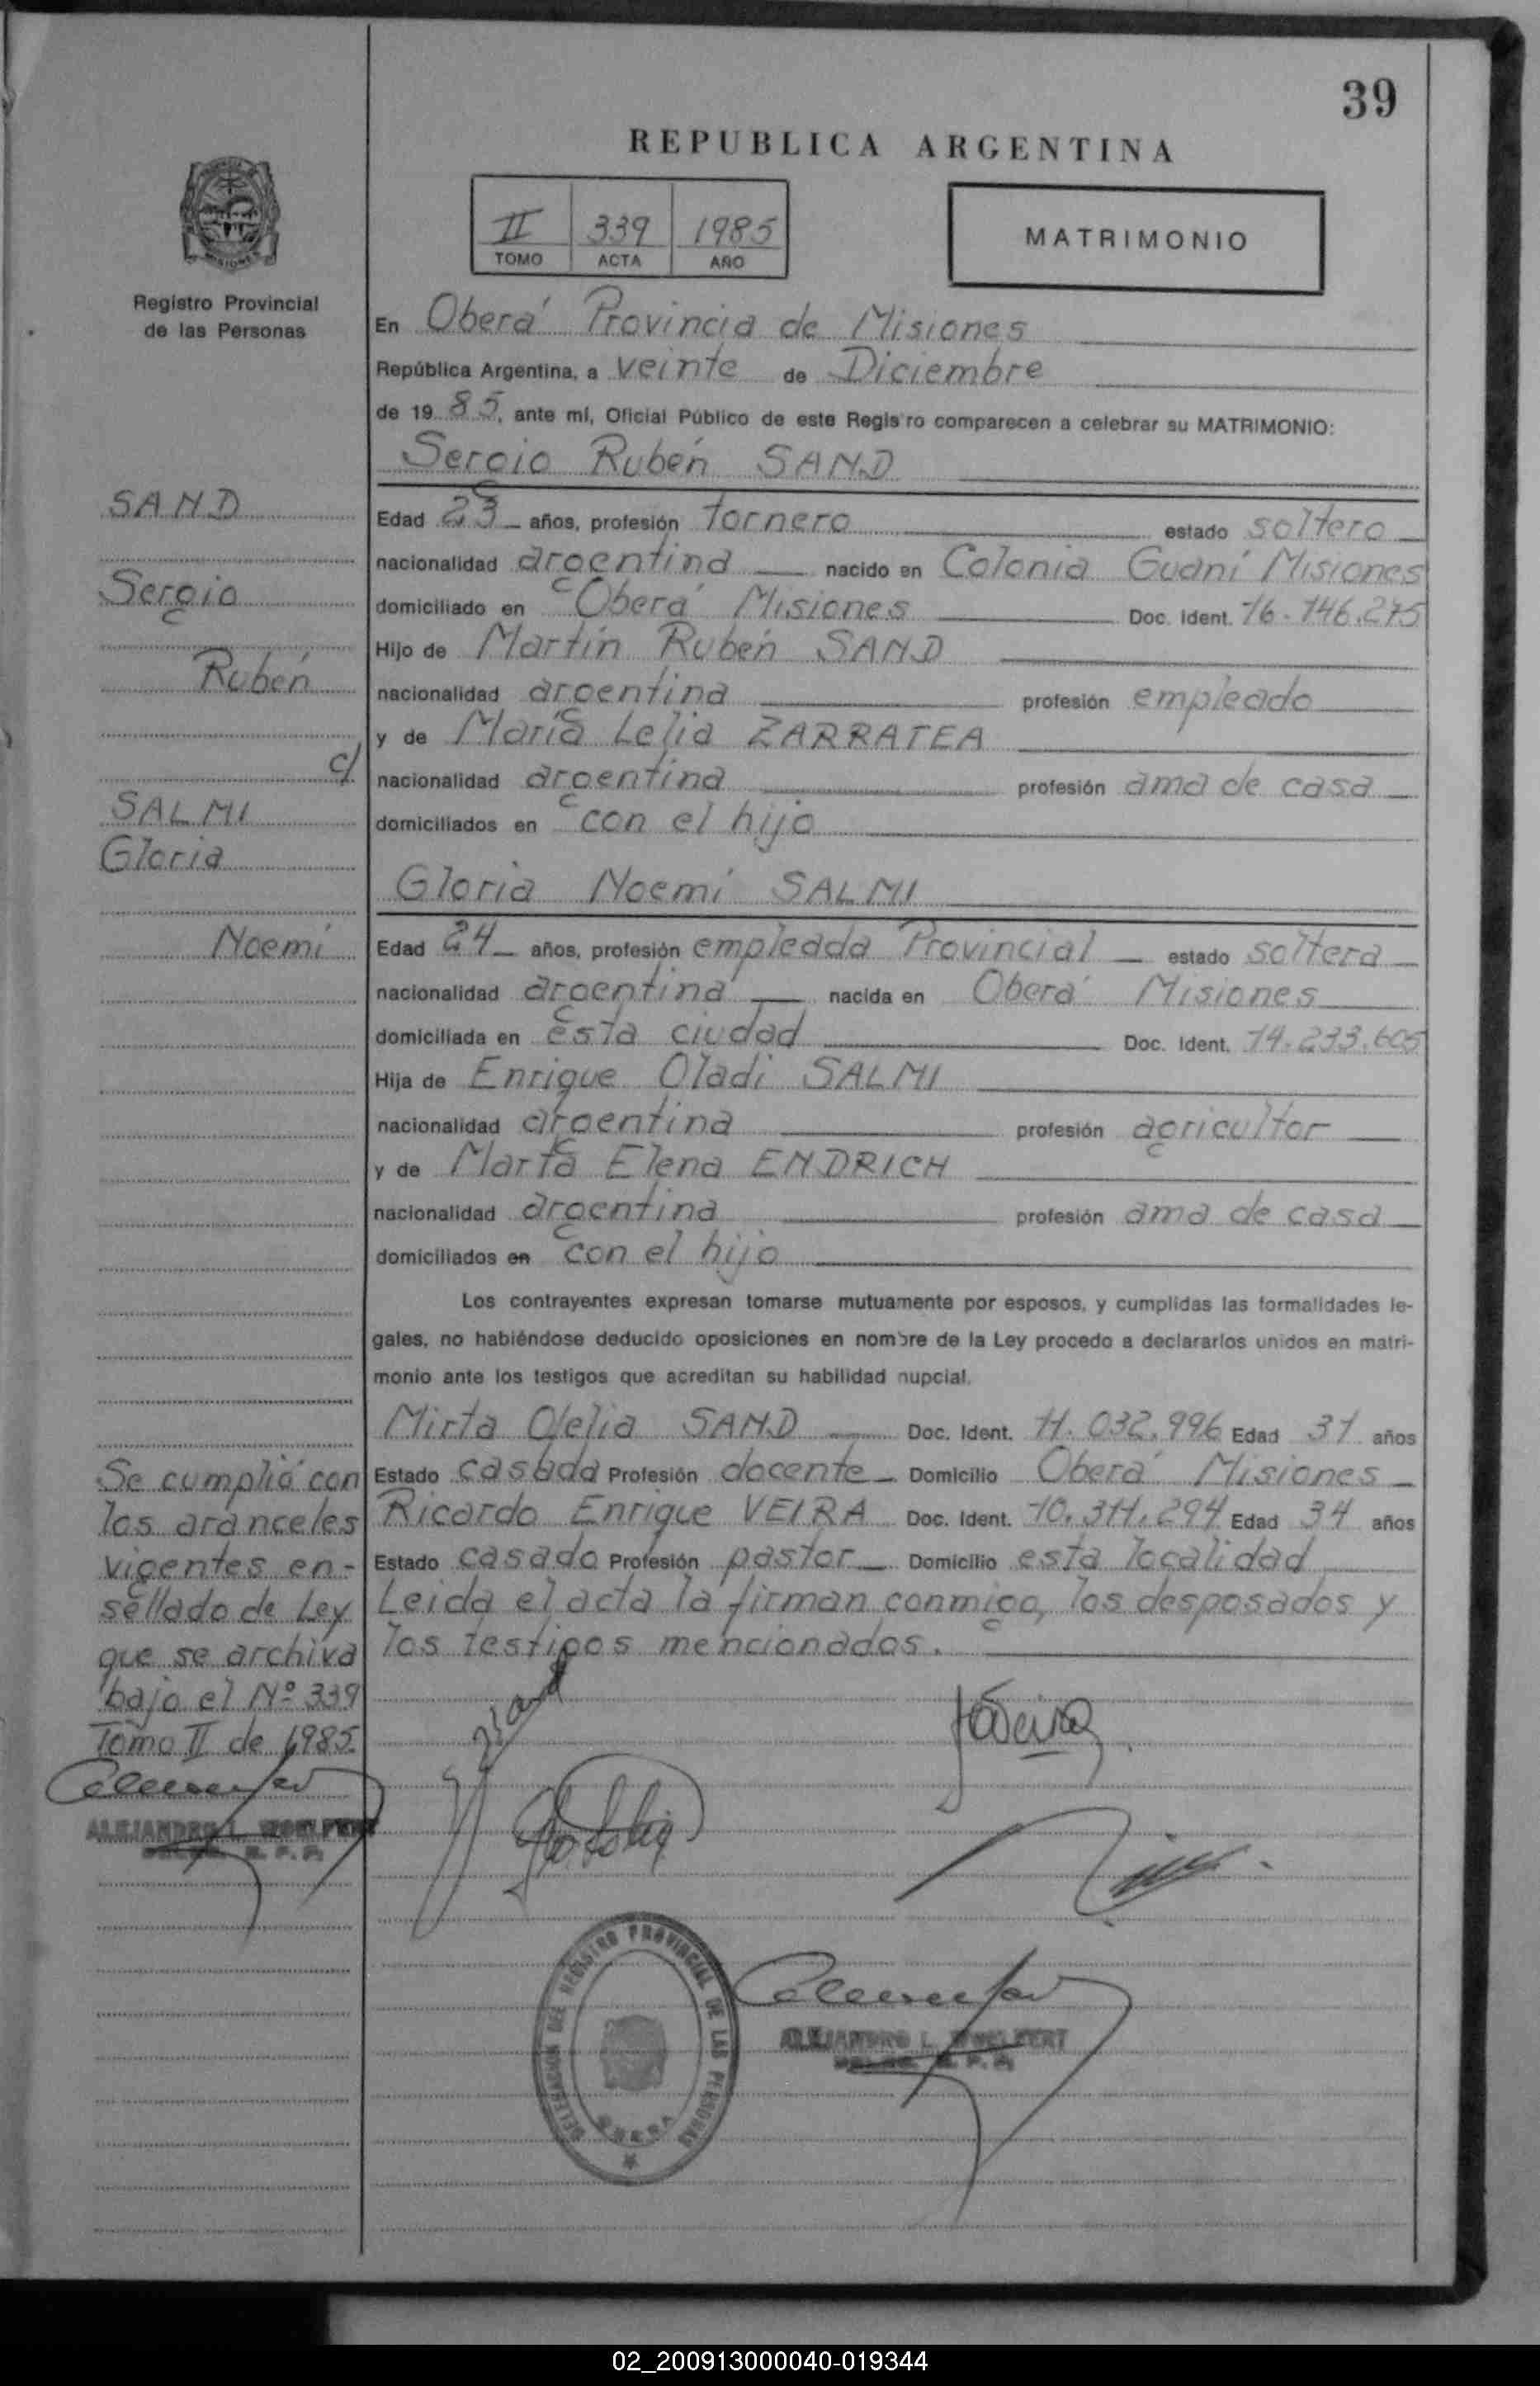 39
REPUBLICA ARGENTINA
II 339 1985
TOMO ACTA AÑO
MATRIMONIO
Registro Provincial
de las Personas
En Oberá Provincia de Misiones
República Argentina, a veinte de Diciembre
de 19 85, ante mí, Oficial Público de este Registro comparecen a celebrar su MATRIMONIO:
Sergio Rubén SAND
SAND
Sergio
Rubén
c/
SALMI
Gloria
Noemí
Edad 23 años, profesión tornero estado soltero
nacionalidad argentina nacido en Colonia Guaní Misiones
domiciliado en Oberá Misiones Doc. Ident. 16.146.275
Hijo de Martín Rubén SAND
nacionalidad argentina profesión empleado
y de María Lelia ZARRATEA
nacionalidad argentina profesión ama de casa
domiciliados en con el hijo
Gloria Noemí SALMI
Edad 24 años, profesión empleada Provincial estado soltera
nacionalidad argentina nacida en Oberá Misiones
domiciliada en esta ciudad Doc. Ident. 14.233.605
Hija de Enrique Oladi SALMI
nacionalidad argentina profesión agricultor
y de Marta Elena ENDRICH
nacionalidad argentina profesión ama de casa
domiciliados en con el hijo
Los contrayentes expresan tomarse mutuamente por esposos, y cumplidas las formalidades le-
gales, no habiéndose deducido oposiciones en nombre de la Ley procedo a declararlos unidos en matri-
monio ante los testigos que acreditan su habilidad nupcial.
Mirta SAND Doc. Ident. 11.032.996 Edad 31 años
Estado casada Profesión docente Domicilio Oberá Misiones
Ricardo Enrique VEIRA Doc. Ident. 10.311.294 Edad 34 años
Estado casado Profesión pastor Domicilio esta localidad
Leida el acta la firman conmigo, los desposados y
los testigos mencionados.
Se cumplió con
los aranceles
vigentes en-
sellado de Ley
que se archiva
bajo el Nº 339
Tomo II de 1985
ALEJANDRO L. WOELFERT
DELEGACION DEL REGISTRO PROVINCIAL DE LAS PERSONAS
OBERA
ALEJANDRO L. WOELFERT
02_200913000040-019344